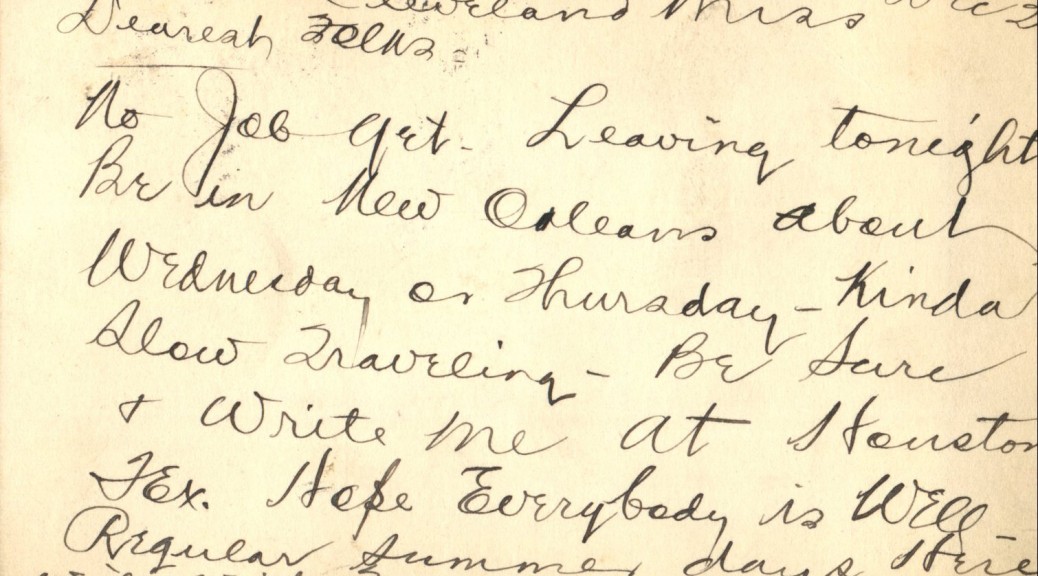 Cleveland Miss
Dearest Folks -
No Job yet. Leaving tonight
Be in New Orleans about
Wednesday or Thursday - Kinda
Slow Traveling - Be Sure
+ Write Me at Houston
TEx. Hope Everybody is Well
Regular summer days Here